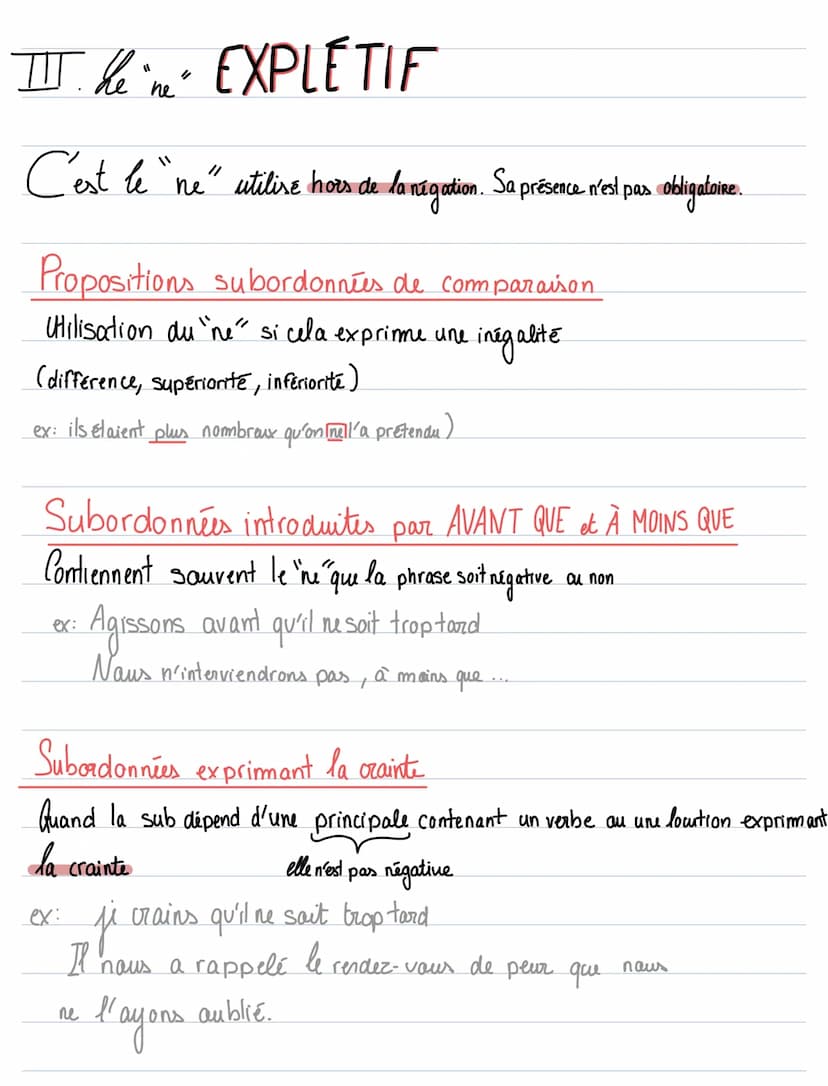 III. Le "ne" EXPLÉTIF
C'est le "ne" utilisé hors de la négation. Sa présence n'est pas obligatoire.
Propositions subordonnées de comparaison
Utilisation du "ne" si cela exprime une inégalité
(différence, supériorité, infériorité)
ex: ils étaient plus nombreux qu'on ne l'a prétendu)
Subordonnées introduites par AVANT QUE et À MOINS QUE
Contiennent souvent le "ne" que la phrase soit négative ou non
ex: Agissons avant qu'il ne soit trop tard
Nous n'interviendrons pas, à moins que ...
Subordonnées exprimant la crainte
Quand la sub dépend d'une principale contenant un verbe ou une locution exprimant
la crainte
elle n'est pas négative
ex: je crains qu'il ne soit trop tard
Il nous a rappelé le rendez-vous de peur que nous
ne l'ayons oublié.